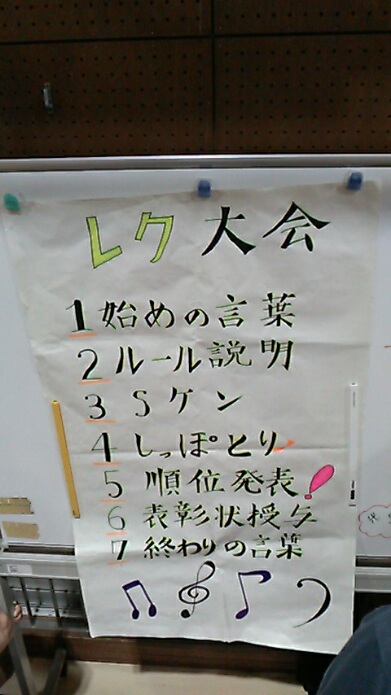 レク大会
1 始めの言葉
2 ルール説明
3 Sケン
4 しっぽとり
5 順位発表!
6 表彰状授与
7 終わりの言葉